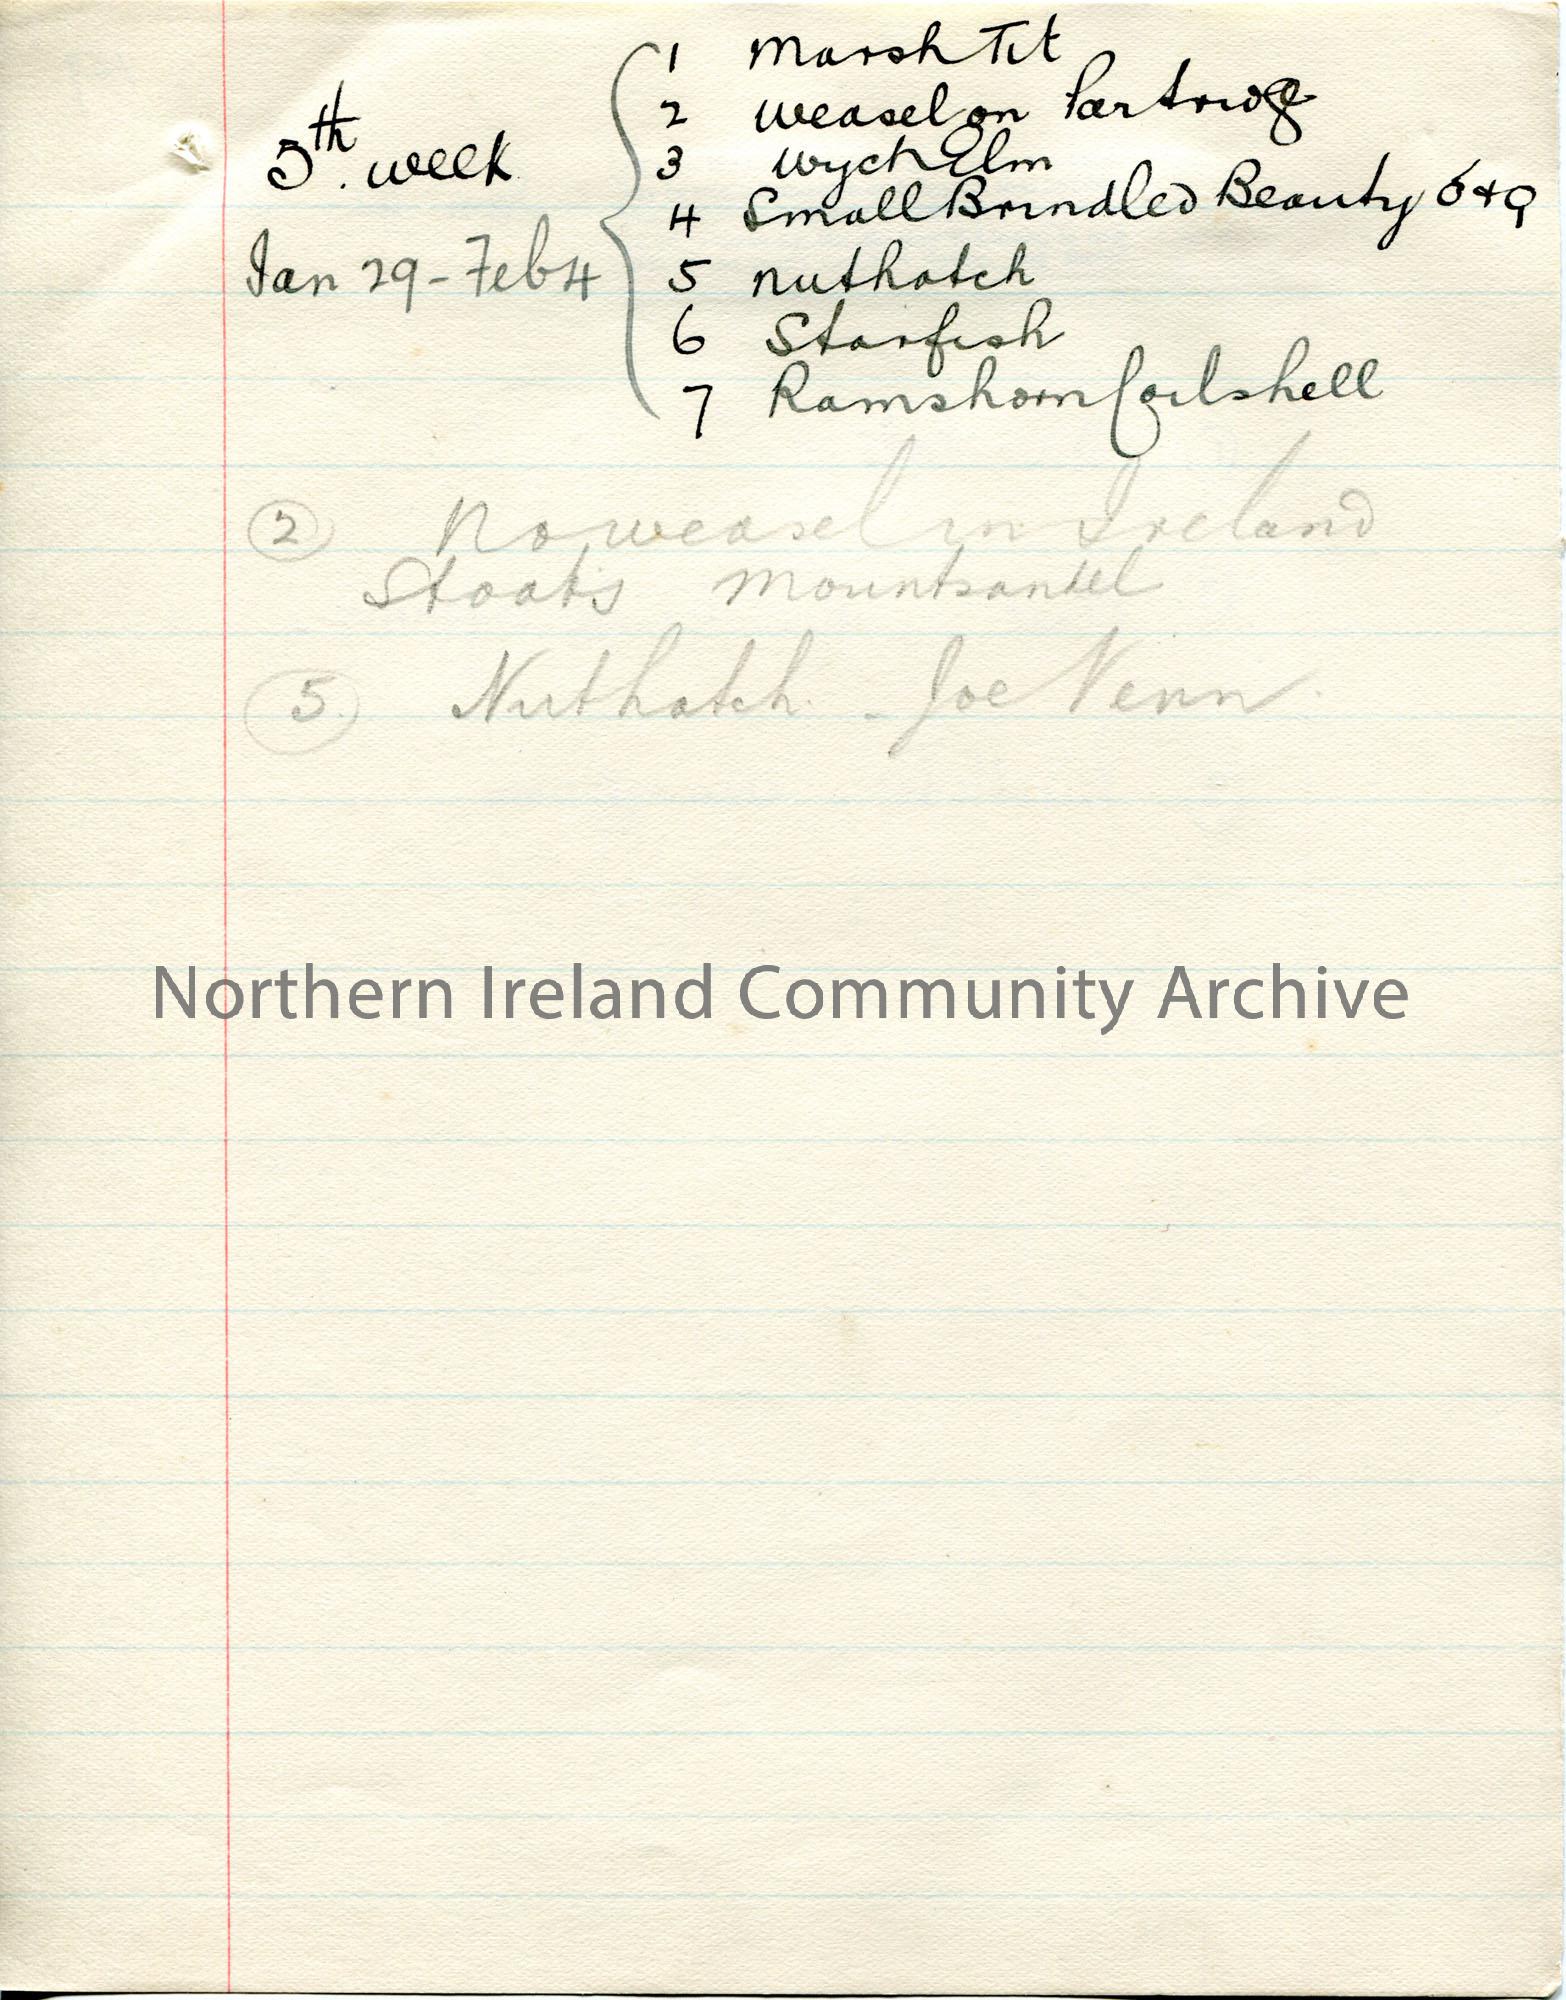 5th. week
Jan 29 - Feb 4
1 Marsh Tit
2 weasel on Partridge
3 wych Elm
4 Small Brindled Beauty ♂ + ♀
5 nuthatch
6 Starfish
7 Ramshorn Coilshell
2 No weasel in Ireland
Stoats Mountsandel
5. Nuthatch. - Joe Venn.
Northern Ireland Community Archive